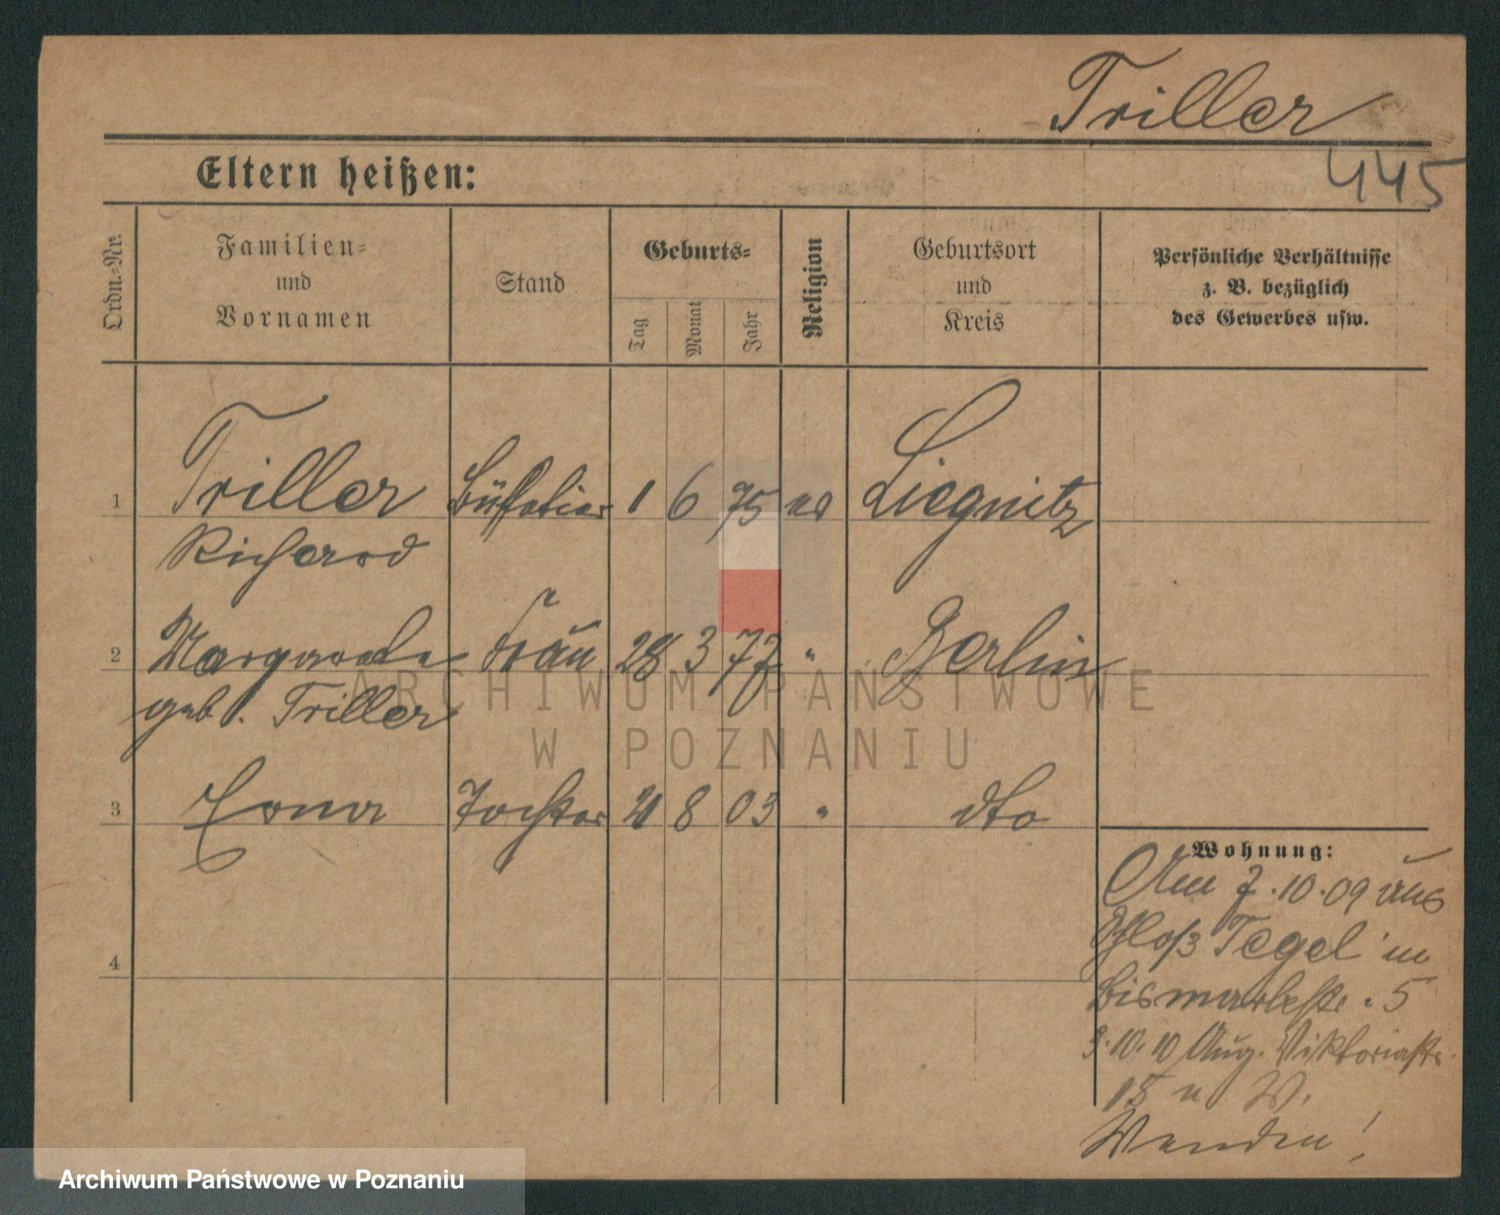 Triller
445
Eltern heißen:
Ordn.-Nr.
Familien-
und
Vornamen
Stand
Geburts-
Tag
Monat
Jahr
Religion
Geburtsort
und
Kreis
Persönliche Verhältnisse
z. B. bezüglich
des Gewerbes usw.
1 Triller Büffetier 1 6 75 Liegnitz
Richard
2 Margarete Frau 28 3 77 " Berlin
geb. Triller
3 Erna Tochter 8 03 " dto
4
Wohnung:
Am 7.10.09 aus
Schloß Tegel in
Bismarckstr. 5
3.10.10 Aug. Viktoriastr.
15 n W.
Wenden!
ARCHIWUM PAŃSTWOWE
W POZNANIU
Archiwum Państwowe w Poznaniu